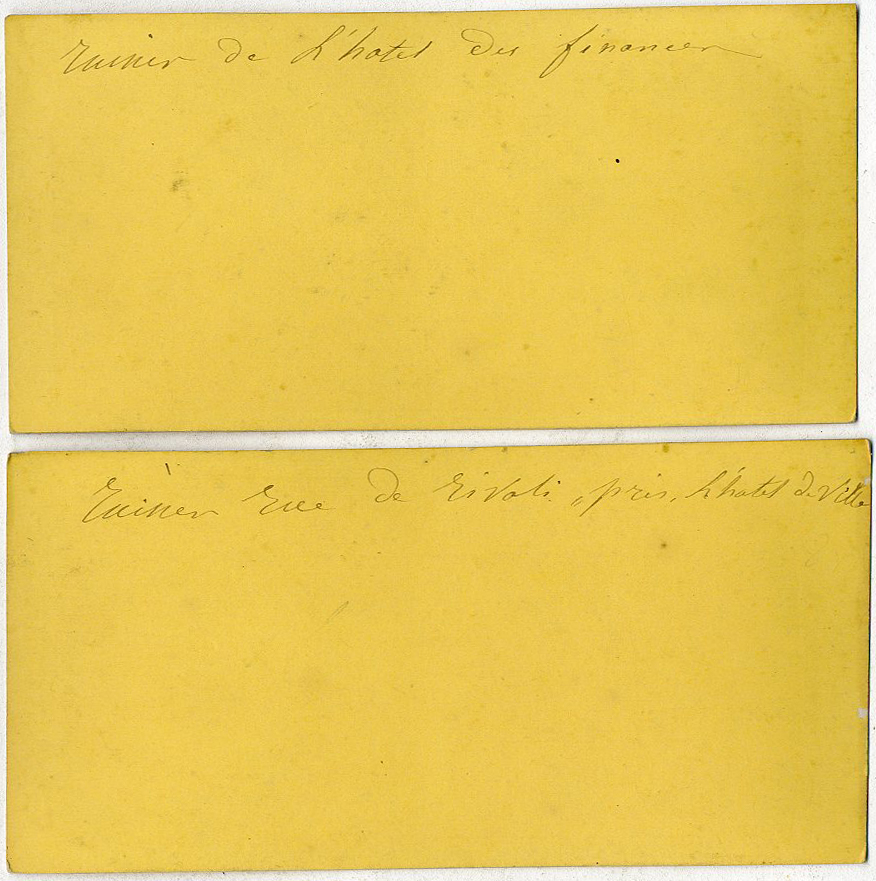 ruines de L'hotel des finances
Ruines Rue de Rivoli, près, L'hotel de Ville